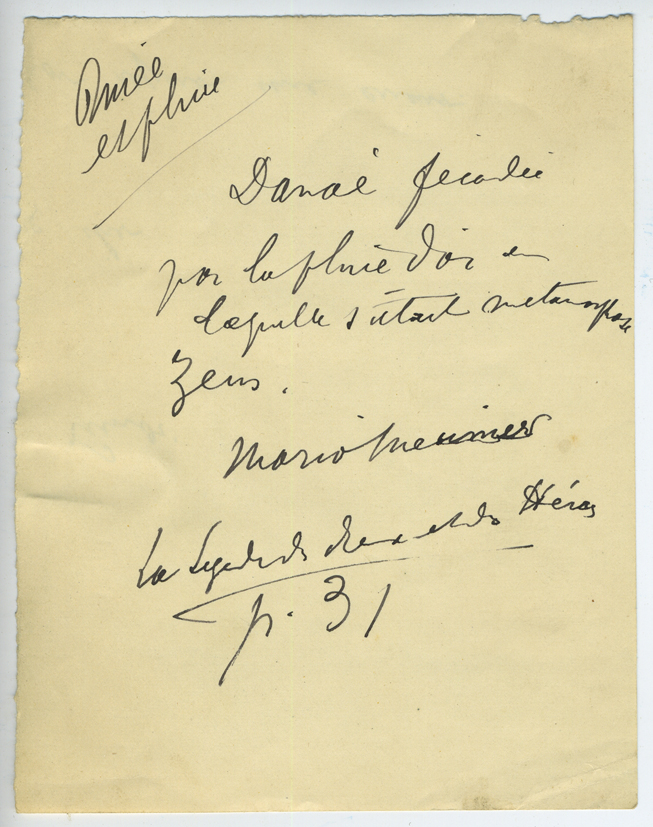 et pluie
Danaé fécondée
par la pluie d'or en
laquelle s'était métamorphosé
Zeus.
Mario Meunier
La Légende des dieux et des Héros
p. 31